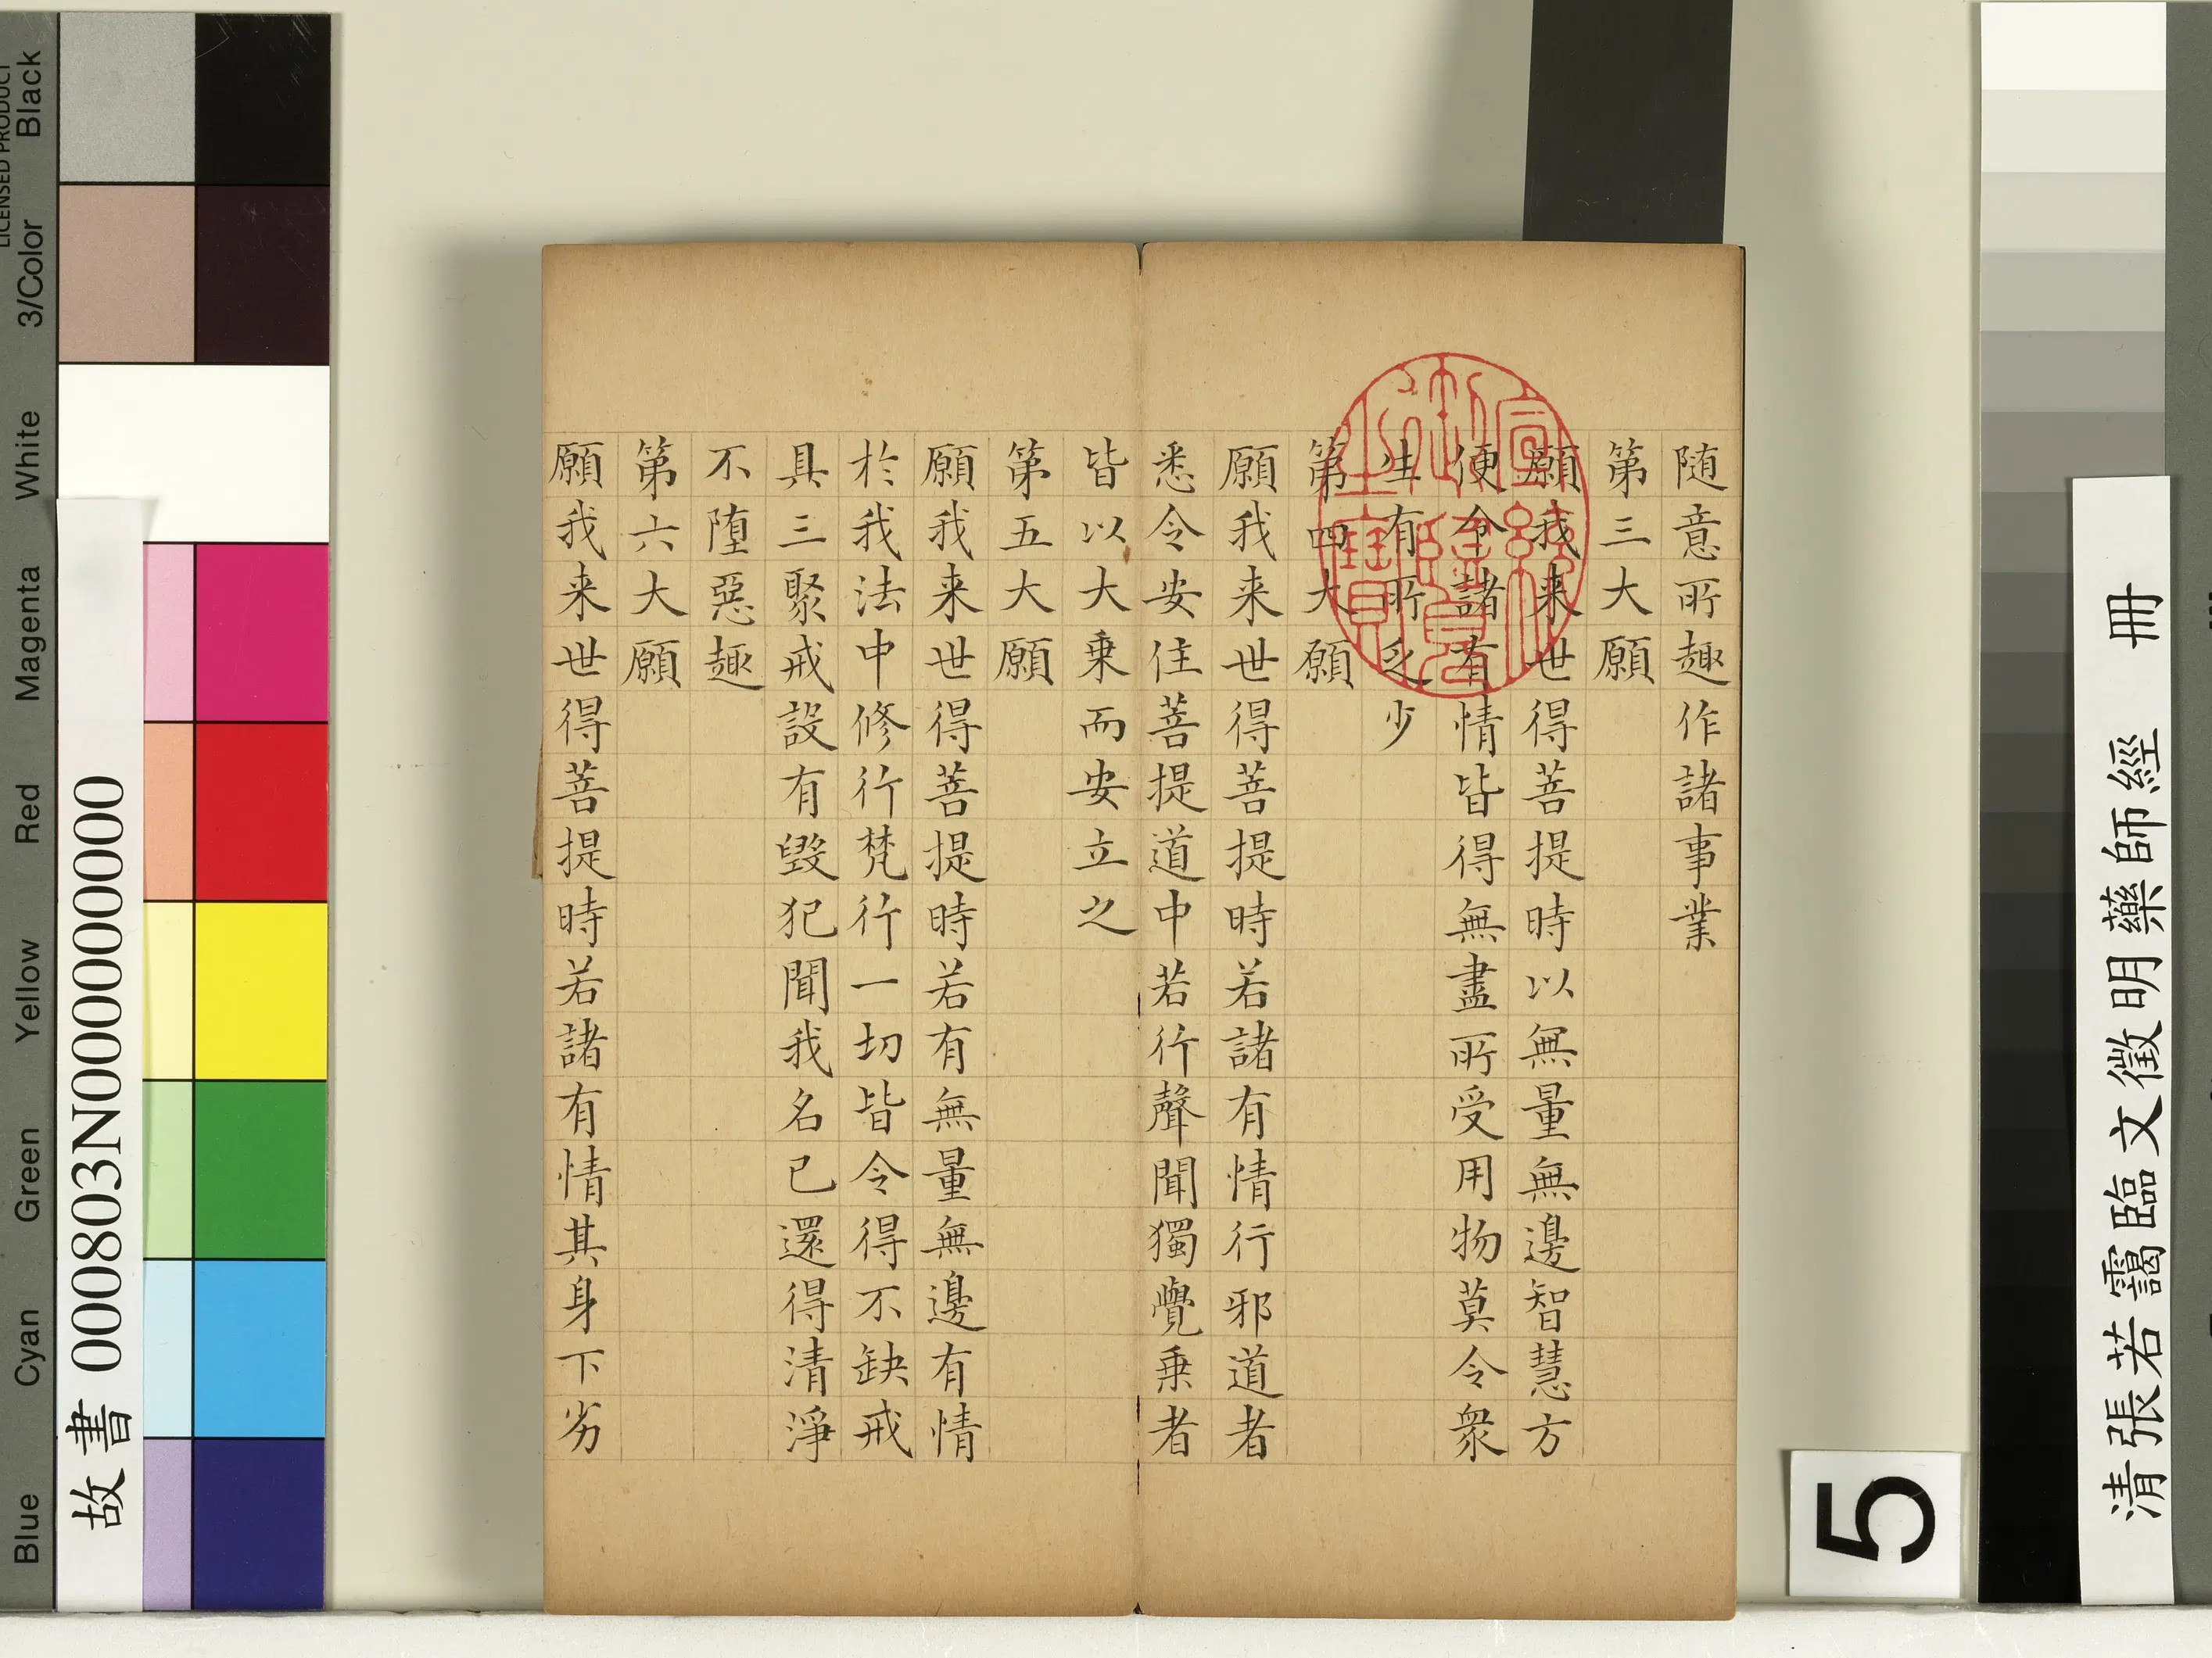 随意所趣作諸事業
第三大願
願我来世得菩提時以無量無邊智慧方
便令諸有情皆得無盡所受用物莫令衆
生有所乏少
第四大願
願我来世得菩提時若諸有情行邪道者
悉令安住菩提道中若行聲聞獨覺乗者
皆以大乗而安立之
第五大願
願我来世得菩提時若有無量無邊有情
於我法中修行梵行一切皆令得不缺戒
具三聚戒設有毀犯聞我名已還得清淨
不墮惡趣
第六大願
願我来世得菩提時若諸有情其身下劣
清張若靄臨文徵明藥師經 冊
5
故書 000803N000000000
LICENSED PRODUCT
Black
3/Color
White
Magenta
Red
Yellow
Green
Cyan
Blue